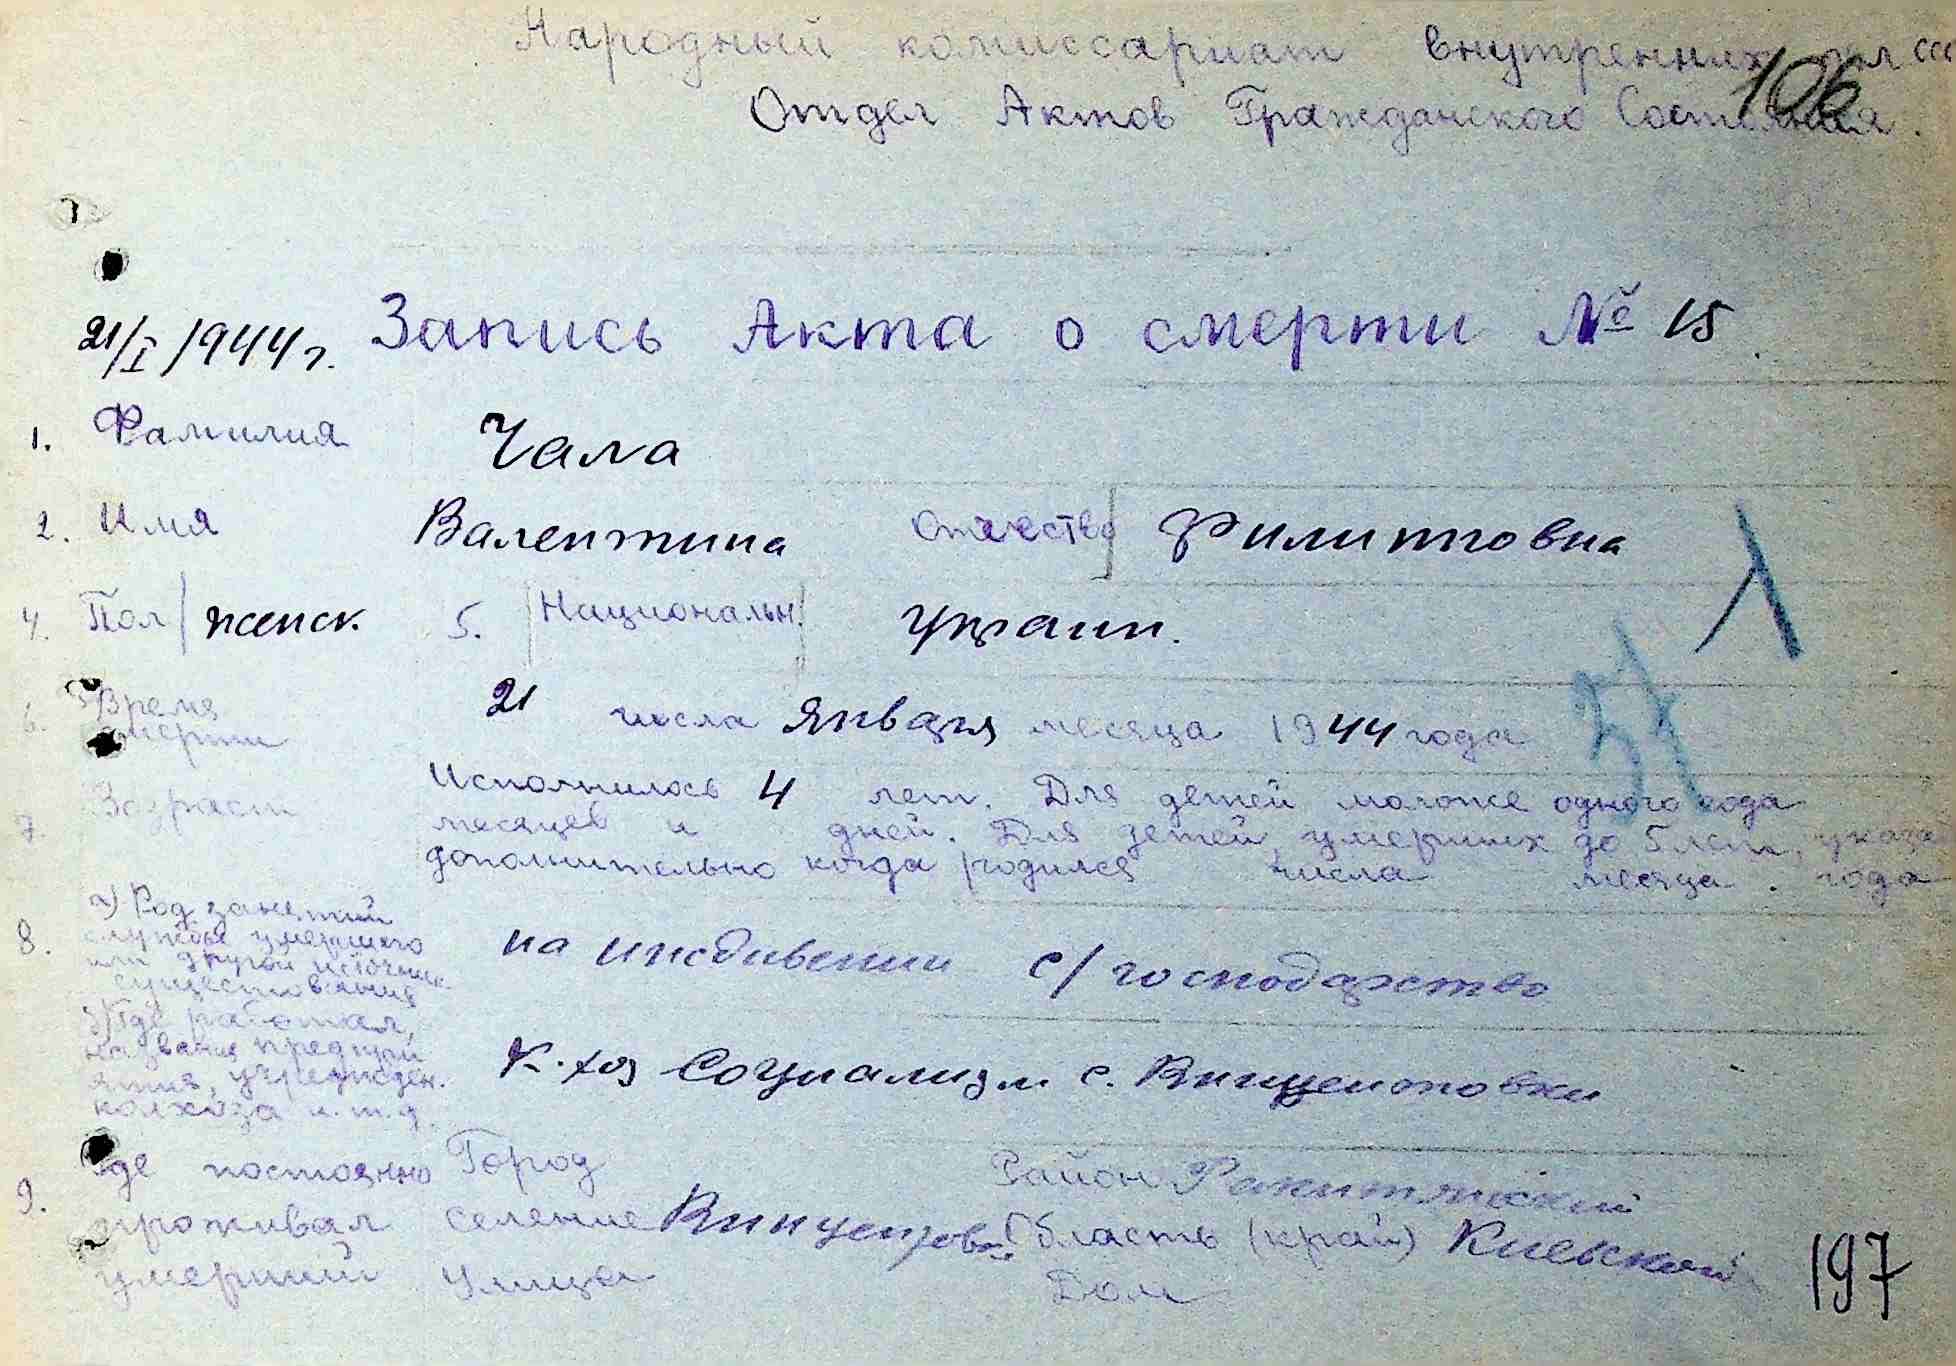 Народный комиссариат внутренних дел ССС
106
Отдел Актов Гражданского Состояния.
21/I/1944 г. Запись Акта о смерти № 15.
1. Фамилия Чала
2. Имя Валентина Отчество Филиповна
4. Пол женск. 5. Национальн. Украин.
6. Время смерти 21 числа января месяца 1944 года
7. Возраст Исполнилось 4 лет. Для детей моложе одного года
месяцев и дней. Для детей, умерших до 5 лет, указа
дополнительно когда родился числа месяца. года
8. а) Род занятий
службы умершего
или другой источник
существования
на иждивении с/господарство
б) Где работал,
название предприятия, учрежден.
колхоза и.т.д.
К-хоз Социализм с. Винцентовки
9. Где постоянно Город Район Ракитянский
проживал селение Область (край) Киевской
умерший Улица Дом
197